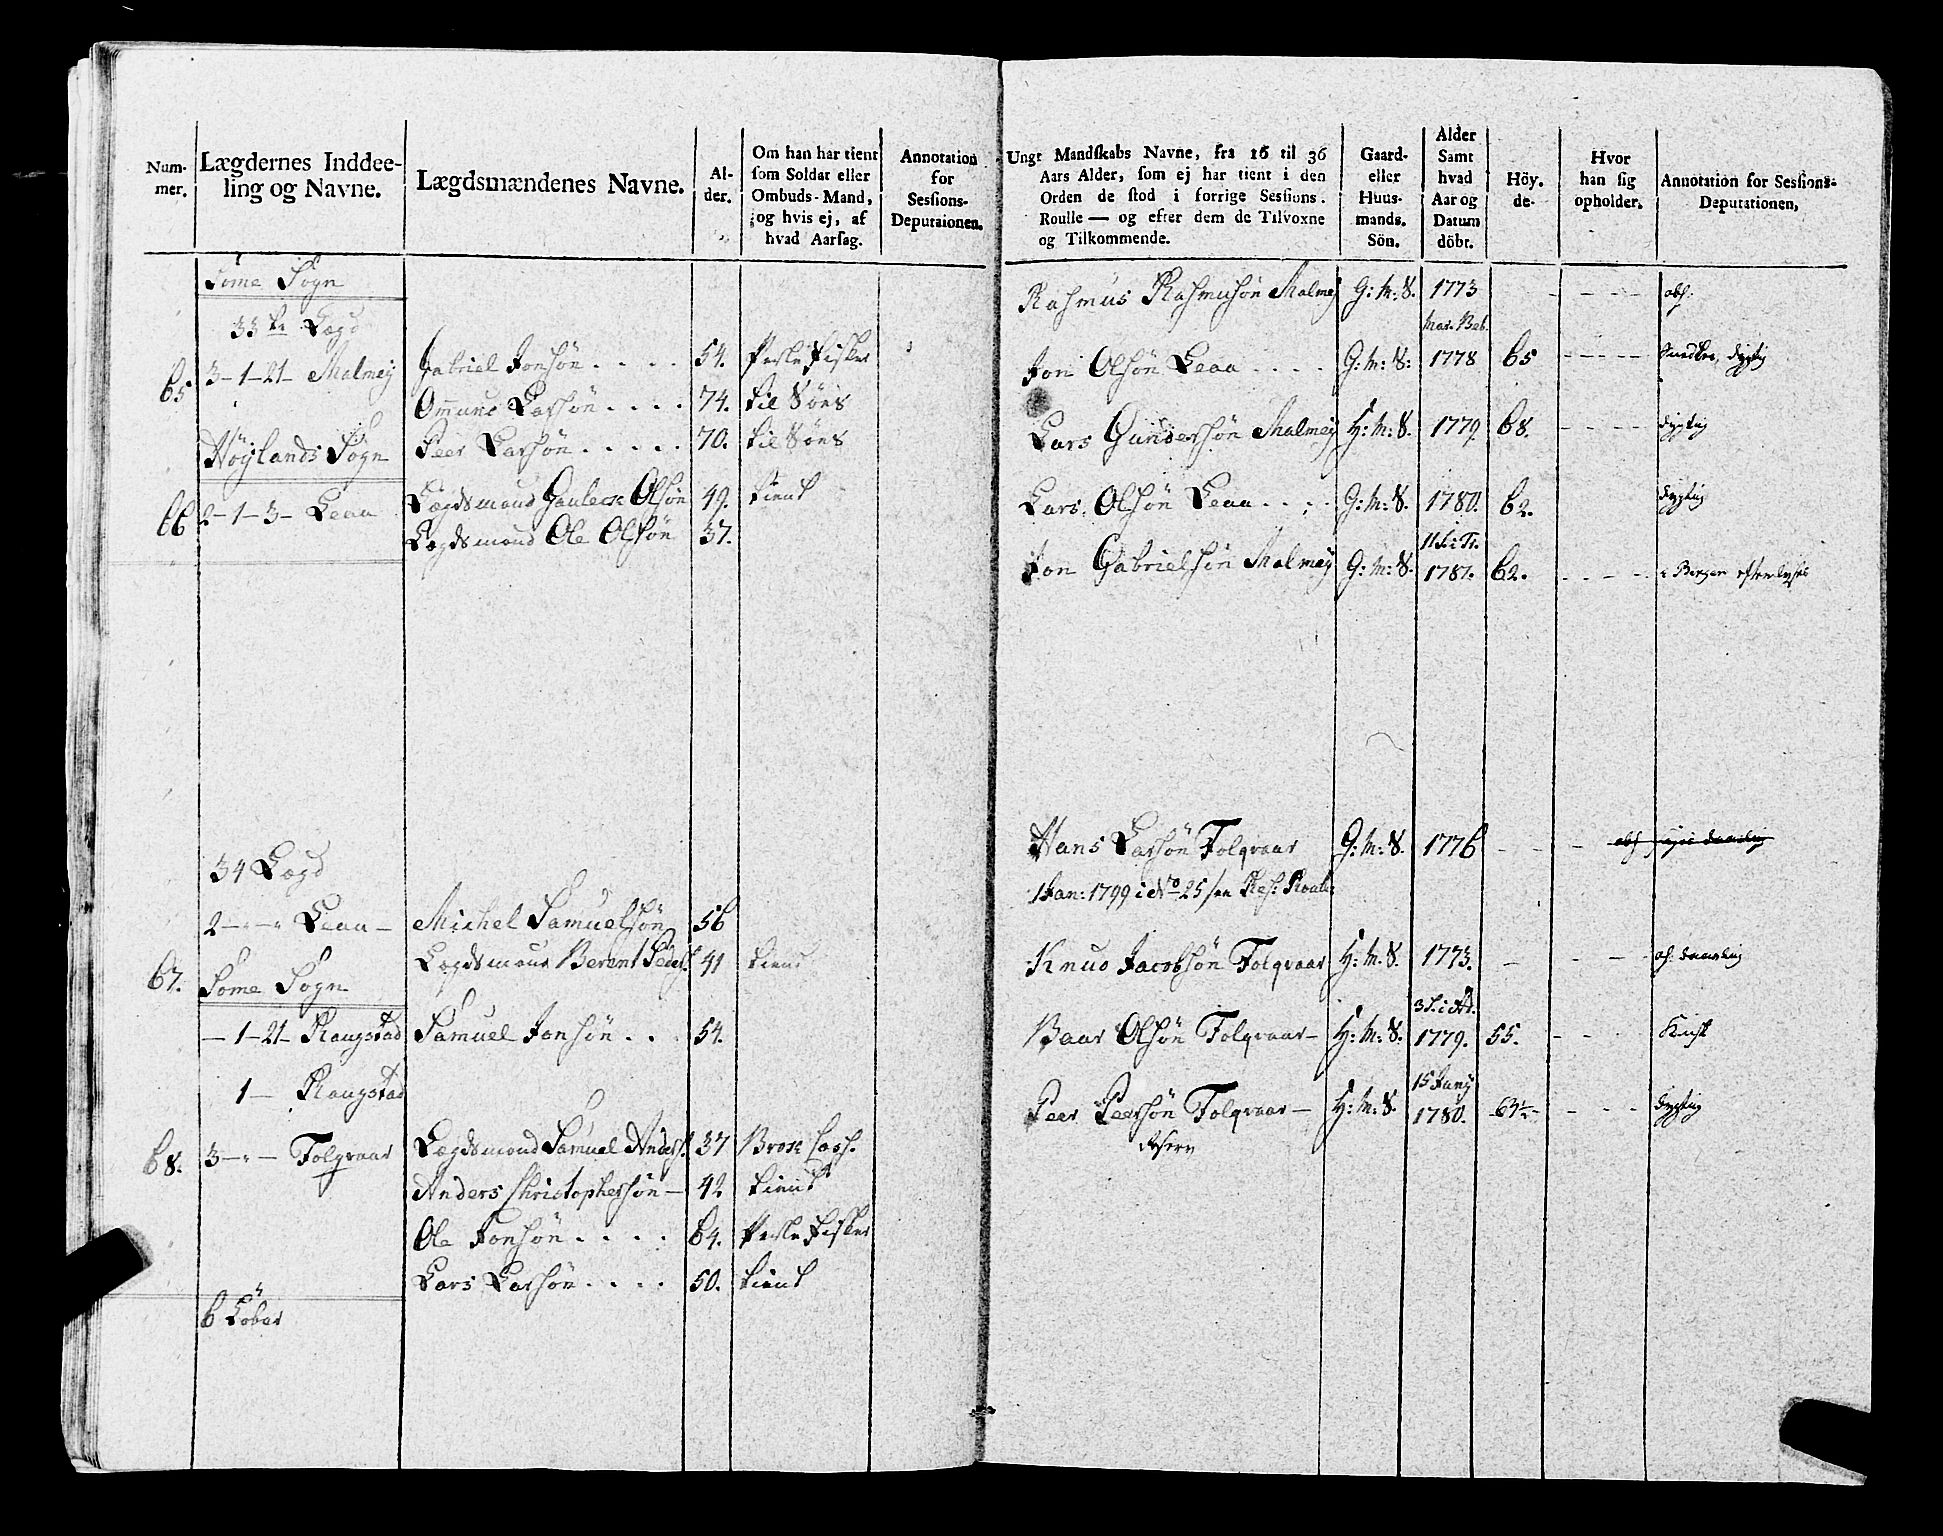 Num-
mer.
Lægdernes Inddee-
ling og Navne.
Lægdsmændenes Navne.
Al-
der.
Om han har tient
som Soldat eller
Ombuds-Mand,
og hvis ej, af
hvad Aarsag.
Annotation
for
Sessions-
Deputaionen.
Some Sogn
33te Lægd
65 3-1-21- Malmej Gabriel Jonsön . . . . 54.
Omund Larsön . . . . 74. til Söes
Höylands Sogn Peer Larsön . . . . . 70. til Söes
66 2-1-3- Leaa Lægdsmand Olsön 49. tient
Lægdsmand Ole Olsön 37.
34 Lægd
2-"-"- Leaa - Michel Samuelsön 56
67. Lægdsmand Berent 41 tient
Some Sogn
-1-21- Raugstad Samuel Jonsön . . . 54.
1- Raugstad
68. 3-"- Folqvaar Lægdsmand Samuel Anders. 37
Anders Christophersön - 42 tient
Ole Jonsön . . . . 64.
Lars Larsön . . . . 50. tient
6 Löber
Ungt Mandskabs Navne, fra 16 til 36
Aars Alder, som ej har tient i den
Orden de stod i forrige Sessions-
Roulle — og efter dem de Tilvoxne
og Tilkommende.
Gaard-
eller
Huus-
mands-
Sön.
Alder
Samt
hvad
Aar og
Datum
döbt.
Höy-
de-
Hvor
han sig
opholder.
Annotation for Sessions-
Deputationen,
Rasmus Rasmusön Malmej G: M: S. 1773 - - - - abs:
Mar. Beb.
Jon Olsön Leaa . . . . G: M: S: 1778 65 - - - - Snedker, dygtig
Lars Gundersön Malmej H: M: S. 1779. 68. - - - - dygtig
Lars Olsön Leaa . . . . G: M: S. 1780. 62. dygtig
Jon Gabrielsön Malmej G: M: S. 1781. 62. - - - - i Bergen
Hans Larsön Folqvaar G: M: S. 1776 - - - abs
1 Jan: 1799 i No 25 Res: Roulle
Knud Jacobsön Folqvaar H: M. S. 1773. - - - -
Baar Olsön Folqvaar - H: M: S. 1779. 55. - - -
15 Junij
Peer Peersön Folqvaar - H: M: S. 1780. - - - dygtig
Reserv